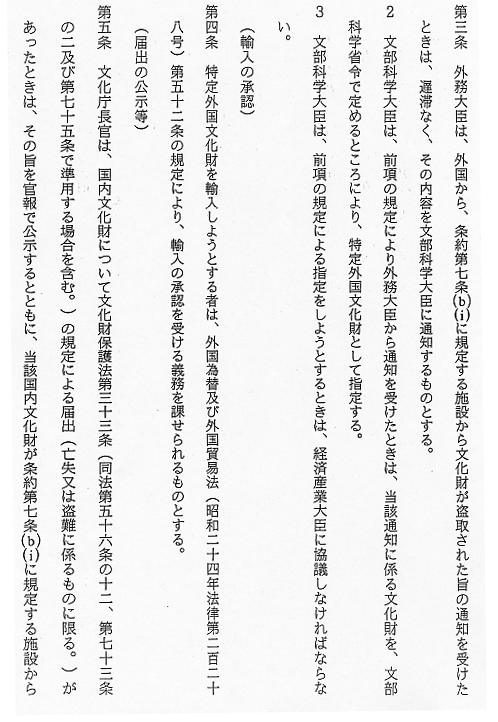 第三条　外務大臣は、外国から、条約第七条(b)(i)に規定する施設から文化財が盗取された旨の通知を受けた
ときは、遅滞なく、その内容を文部科学大臣に通知するものとする。
２　文部科学大臣は、前項の規定により外務大臣から通知を受けたときは、当該通知に係る文化財を、文部
科学省令で定めるところにより、特定外国文化財として指定する。
３　文部科学大臣は、前項の規定による指定をしようとするときは、経済産業大臣に協議しなければならな
い。
（輸入の承認）
第四条　特定外国文化財を輸入しようとする者は、外国為替及び外国貿易法（昭和二十四年法律第二百二十
八号）第五十二条の規定により、輸入の承認を受ける義務を課せられるものとする。
（届出の公示等）
第五条　文化庁長官は、国内文化財について文化財保護法第三十三条（同法第五十六条の十二、第七十三条
の二及び第七十五条で準用する場合を含む。）の規定による届出（亡失又は盗難に係るものに限る。）が
あったときは、その旨を官報で公示するとともに、当該国内文化財が条約第七条(b)(i)に規定する施設から